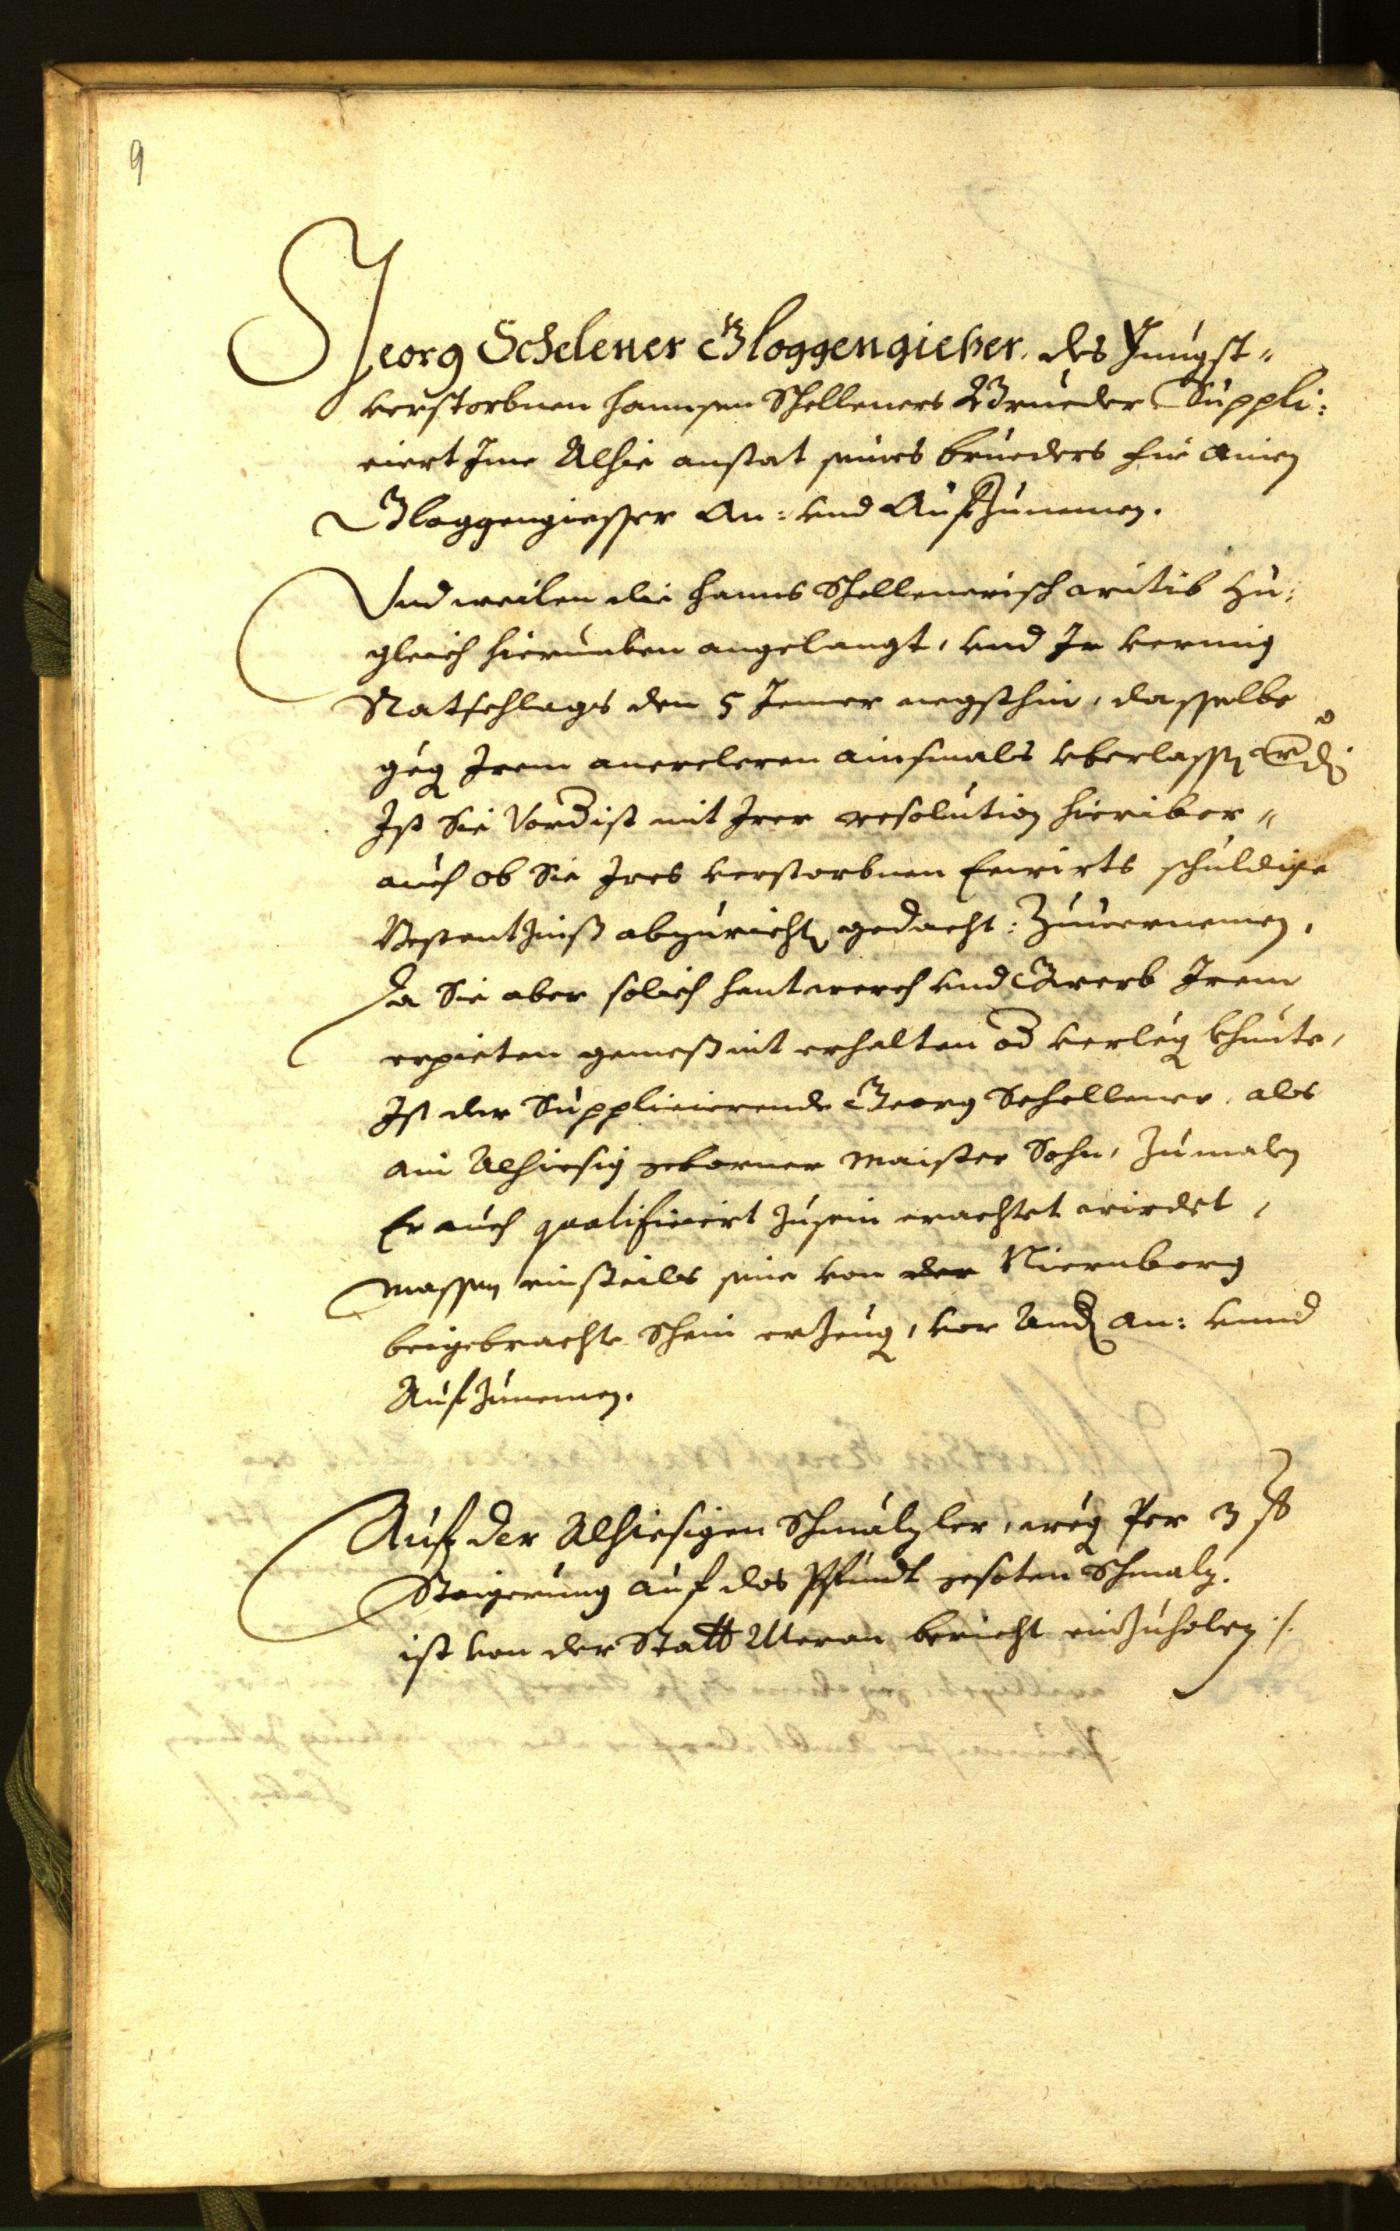 9
Georg Schelener Gloggengießer. des Jüngst=
verstorbnen Hannsen Schelleners Brueder Suppli:
ciert Ime Alhie anstat seines brueders für ainen
Gloggengiesser An: vnd Aufzunemen.
Vnd weilen die Hanns Schellenerisch witib zu:
gleich hierumben angelangt, vnd Ir vermig
Ratschlags den 5 Jenner negsthin, dasselbe
geg Irem ainsmals vberlassen
Ist Sie Vordist mit Irer resolution hieriber "
auch ob Sie Ires verstorbnen Eewirts schuldige
abzurichten gedacht: Zuuernemen,
Da Sie aber solich hantwerch vnd Gwerb Irem
erpieten gemeß nit erhalten od verleg khunte,
Ist der Supplicierende Georg Schellener, als
ain Alhiesig geborner maister Sohn, Zumalen
Er auch qualificiert zusein erachtet wirdet,
massen einsteils seine von der Niernberg
beigebrachte Schein erzeug, vor Andn an: vnnd
Aufzunemen.
Auf der Alhiesigen Schmalzler, weg Per 3
Staigerung auf das Pfundt gesoten Schmalz.
ist von der Statt Meran bericht einzuholen ./.